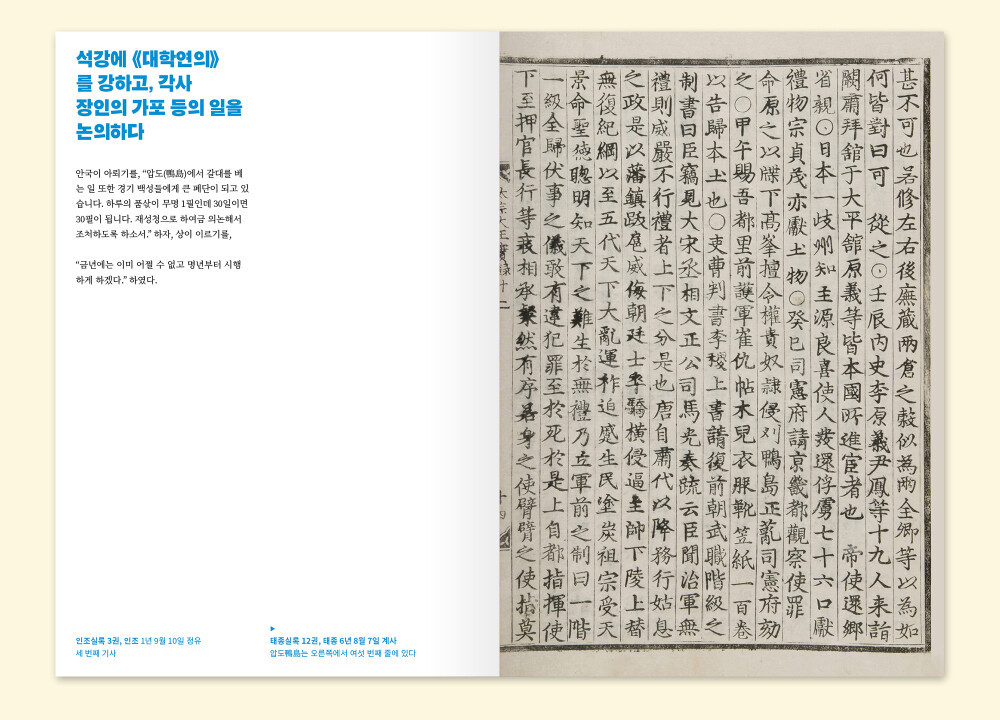 석강에 《대학연의》
를 강하고, 각사
장인의 가포 등의 일을
논의하다
안국이 아뢰기를, “압도(鴨島)에서 갈대를 베
는 일 또한 경기 백성들에게 큰 폐단이 되고 있
습니다. 하루의 품삯이 무명 1필인데 30일이면
30필이 됩니다. 재성청으로 하여금 의논해서
조처하도록 하소서.” 하자, 상이 이르기를,
“금년에는 이미 어쩔 수 없고 명년부터 시행
하게 하겠다.” 하였다.
인조실록 3권, 인조 1년 9월 10일 정유
세 번째 기사
▶
태종실록 12권, 태종 6년 8월 7일 계사
압도鴨島는 오른쪽에서 여섯 번째 줄에 있다
甚不可也若修左右後廡蔵兩倉之穀似為兩全卿等以為如
何皆對曰可 從之○壬辰內史李原義尹鳳等十九人来詣
闕肅拜舘于大平舘原義等皆本國所進宦者也 帝使還鄉
省親○日本一歧州知主源良喜使人發還俘虜七十六口獻
禮物宗貞茂亦獻土物○癸巳司憲府請京畿都觀察使罪
命原之以牒下高峯擅令權貴奴隷侵刈鴨島正亂司憲府劾
之○甲午賜吾都里前護軍崔仇帖木兒衣服靴笠紙一百卷
以告歸本土也○吏曹判書李稷上書請復前朝武職階級之
制書曰臣竊見大宋丞相文正公司馬光奏疏云臣聞治軍無
禮則威嚴不行禮者上下之分是也唐自肅代以降務行姑息
之政是以藩鎮跋扈威侮朝廷士卒驕橫侵逼主帥下陵上替
無復紀綱以至五代天下大亂運祚迫蹙生民塗炭祖宗受天
景命聖德聰明知天下之難生於無禮乃立軍前之制曰一階
一級全歸伏事之儀敢有違犯罪至於死於是上自都指揮使
下至押官長行等衰相承粲然有序若身之使臂臂之使指莫